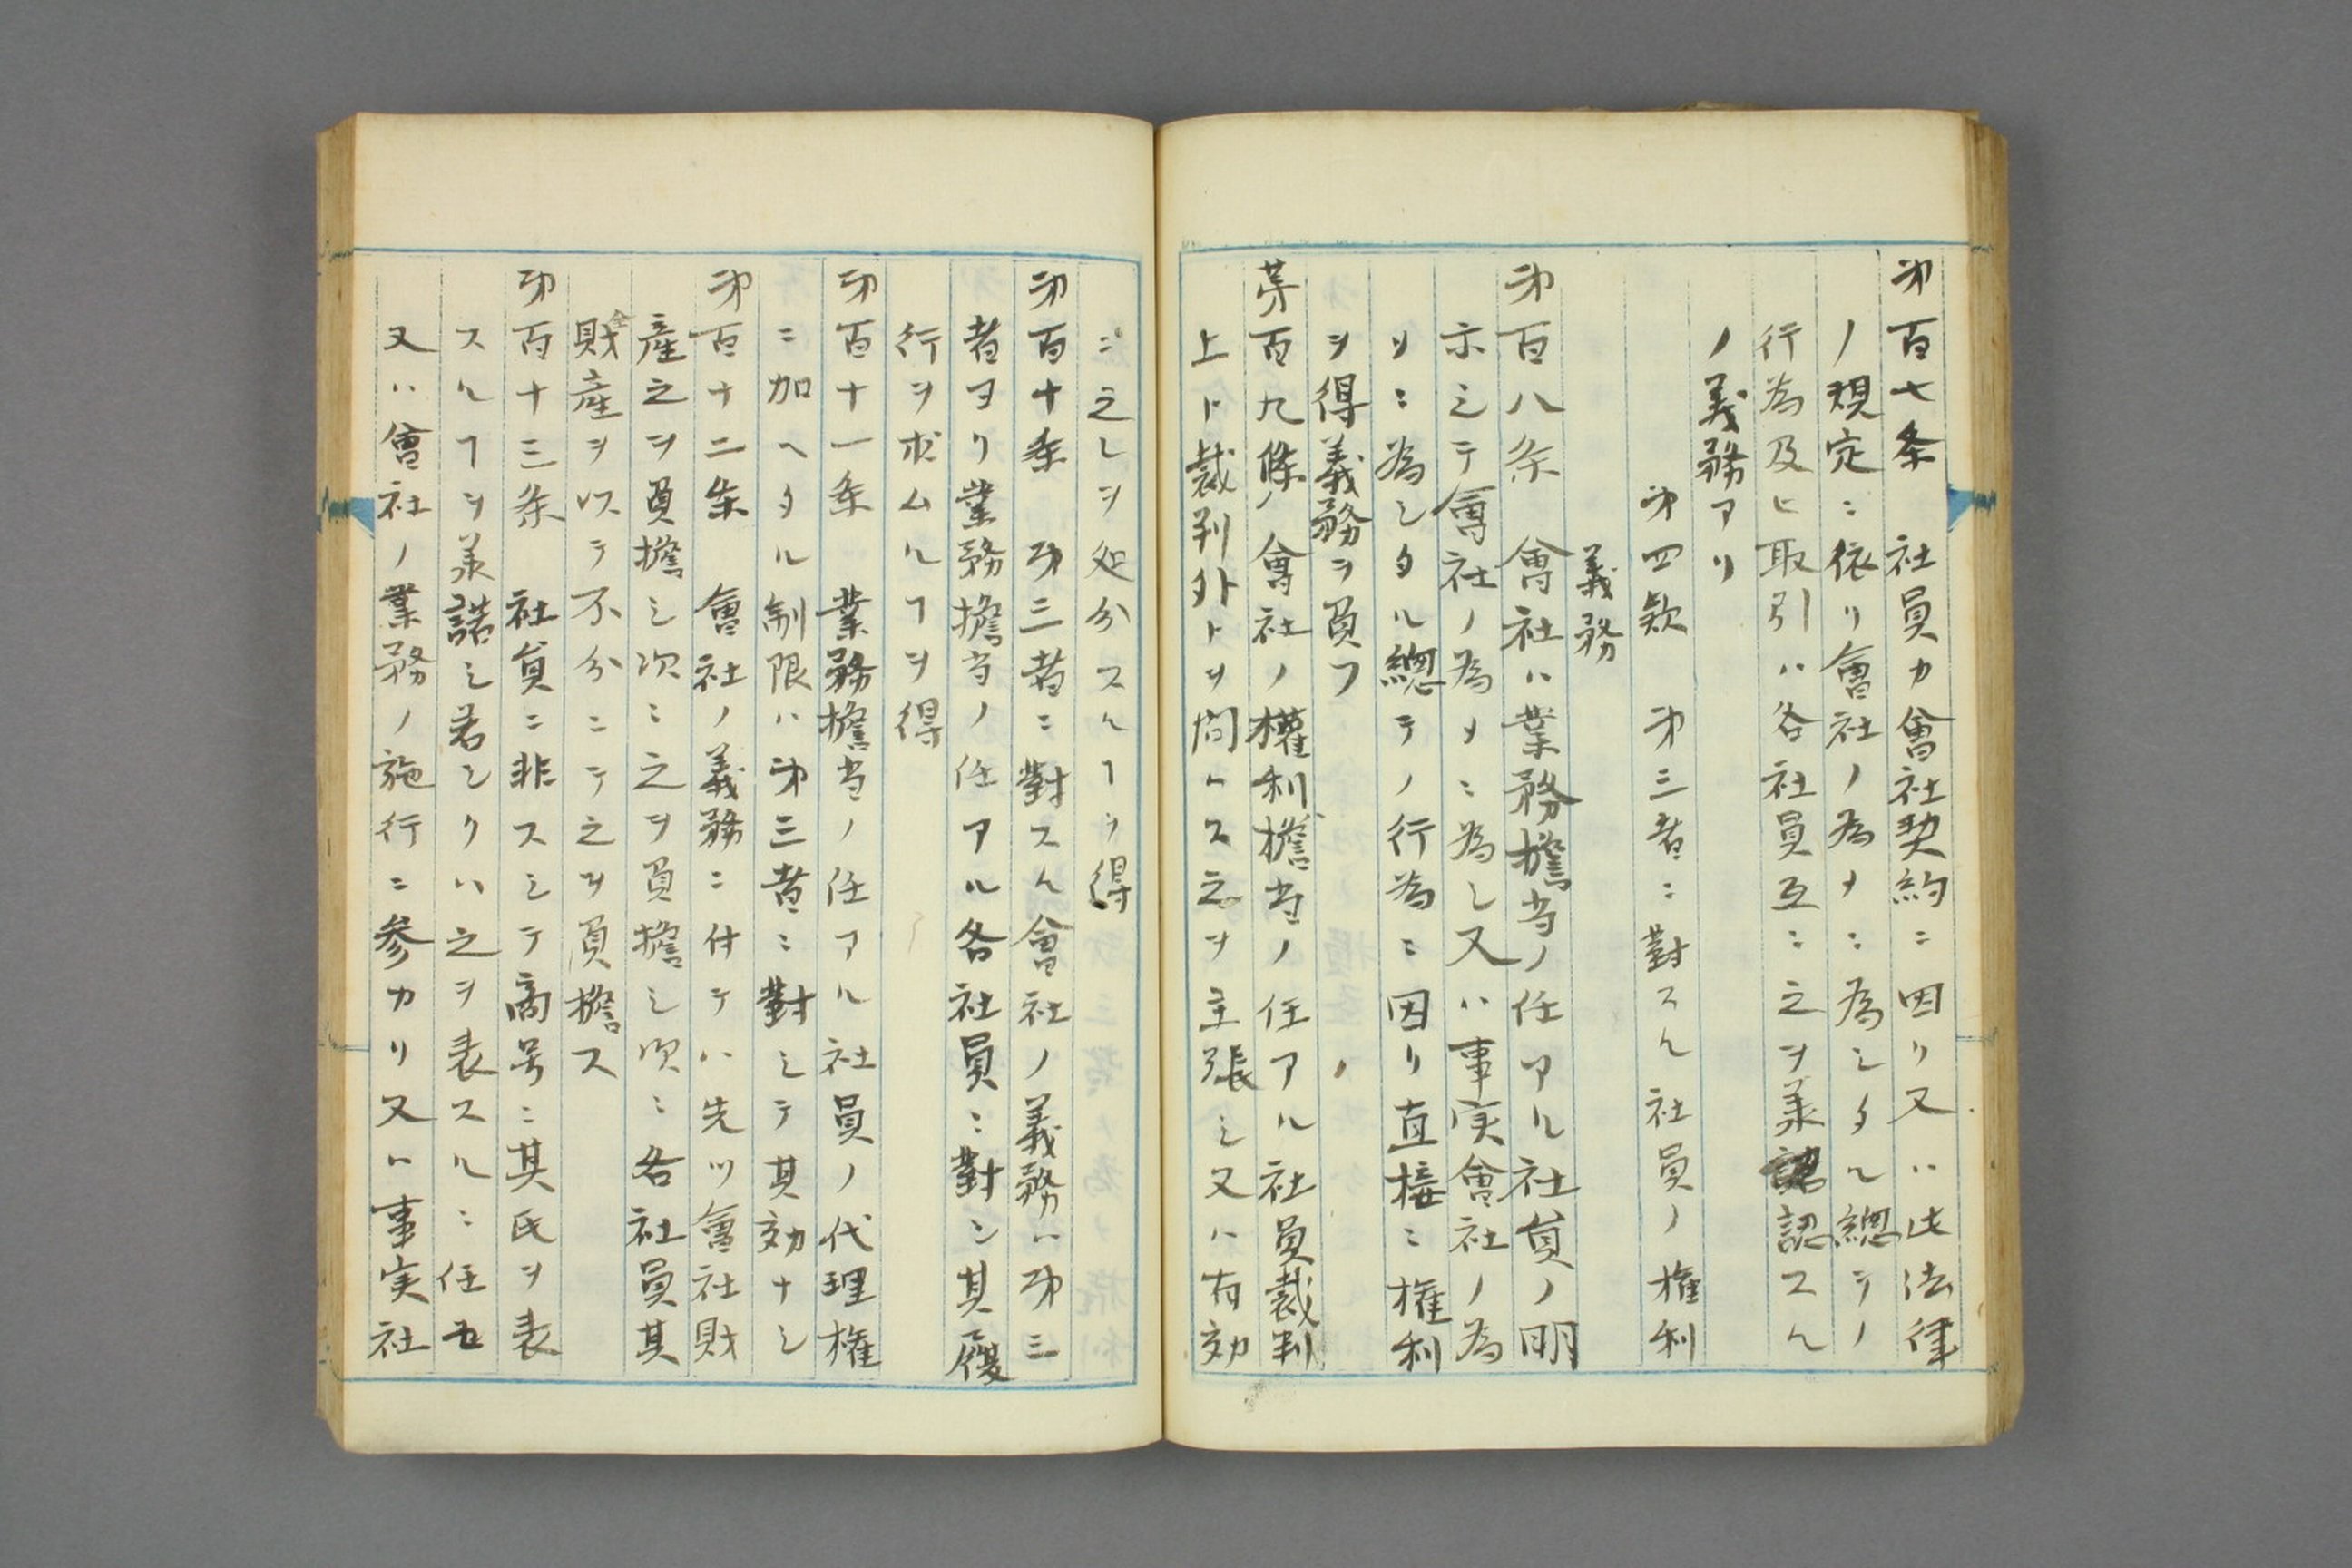 第百七条　社員カ會社契約ニ因リ又ハ此法律
ノ規定ニ依リ會社ノ為メニ為シタル總テノ
行為及ヒ取引ハ各社員互ニ之ヲ承認スル
ノ義務アリ
第四欵　第三者ニ對スル社員ノ権利
義務
第百八条　會社ハ業務擔当ノ任アル社員ノ明
示シテ會社ノ為メニ為シ又ハ事実會社ノ為
メニ為シタル總テノ行為ニ因リ直接ニ権利
ヲ得義務ヲ負フ
第百九條　會社ノ權利ハ擔当ノ任アル社員裁判
上ト裁判外トヲ問ハス之ヲ主張シ又ハ有効
ニ之レヲ処分スルヿヲ得
第百十条　第三者ニ對スル會社ノ義務ハ第三
者ヨリ業務擔当ノ任アル各社員ニ對シ其履
行ヲ求ムルヿヲ得
第百十一条　業務擔当ノ任アル社員ノ代理権
ニ加ヘタル制限ハ第三者ニ對シテ其効ナシ
第百十二条　會社ノ義務ニ付テハ先ツ會社財
産之ヲ負擔シ次ニ之ヲ負擔シ次ニ各社員其
全財産ヲ以テ不分ニテ之ヲ負擔ス
第百十三条　社員ニ非スシテ商号ニ其氏ヲ表
スルヿヲ承諾シ若シクハ之ヲ表スルニ任セ
又ハ會社ノ業務ノ施行ニ参カリ又ハ事実社